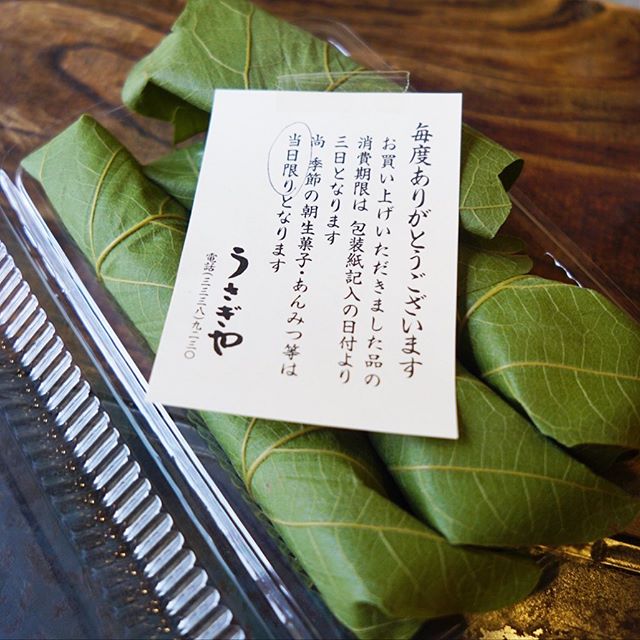 毎度ありがとうございます
お買い上げいただきました品の
消費期限は 包装紙記入の日付より
三日となります
尚 季節の朝生菓子・あんみつ等は
当日限りとなります
うさぎや